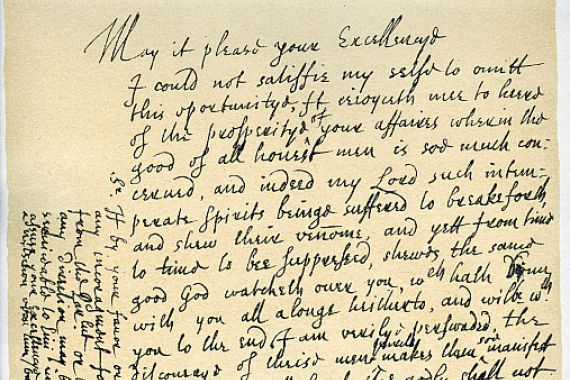 May it please your Excellencye
I could not satisfie my selfe to omitt
this oportunitye, It reioyceth mee to heere
of the prosperitye of your affaires wherein the
good of all honest men is soe much con:
cerned, and indeed my Lord such intem:
perate Spirits beinge suffered to breakeforth,
and shew their venome, and yett from time
to time to bee suppressed, shewes the same
good God watcheth over you, wch hath
with you all alonge hitherto, and wilbe wth
you to the end I am verily perswaded, the
of these men makes them soe manifest
shall not
Sr. If by your favor or
any incoragement
from the
any direction may b